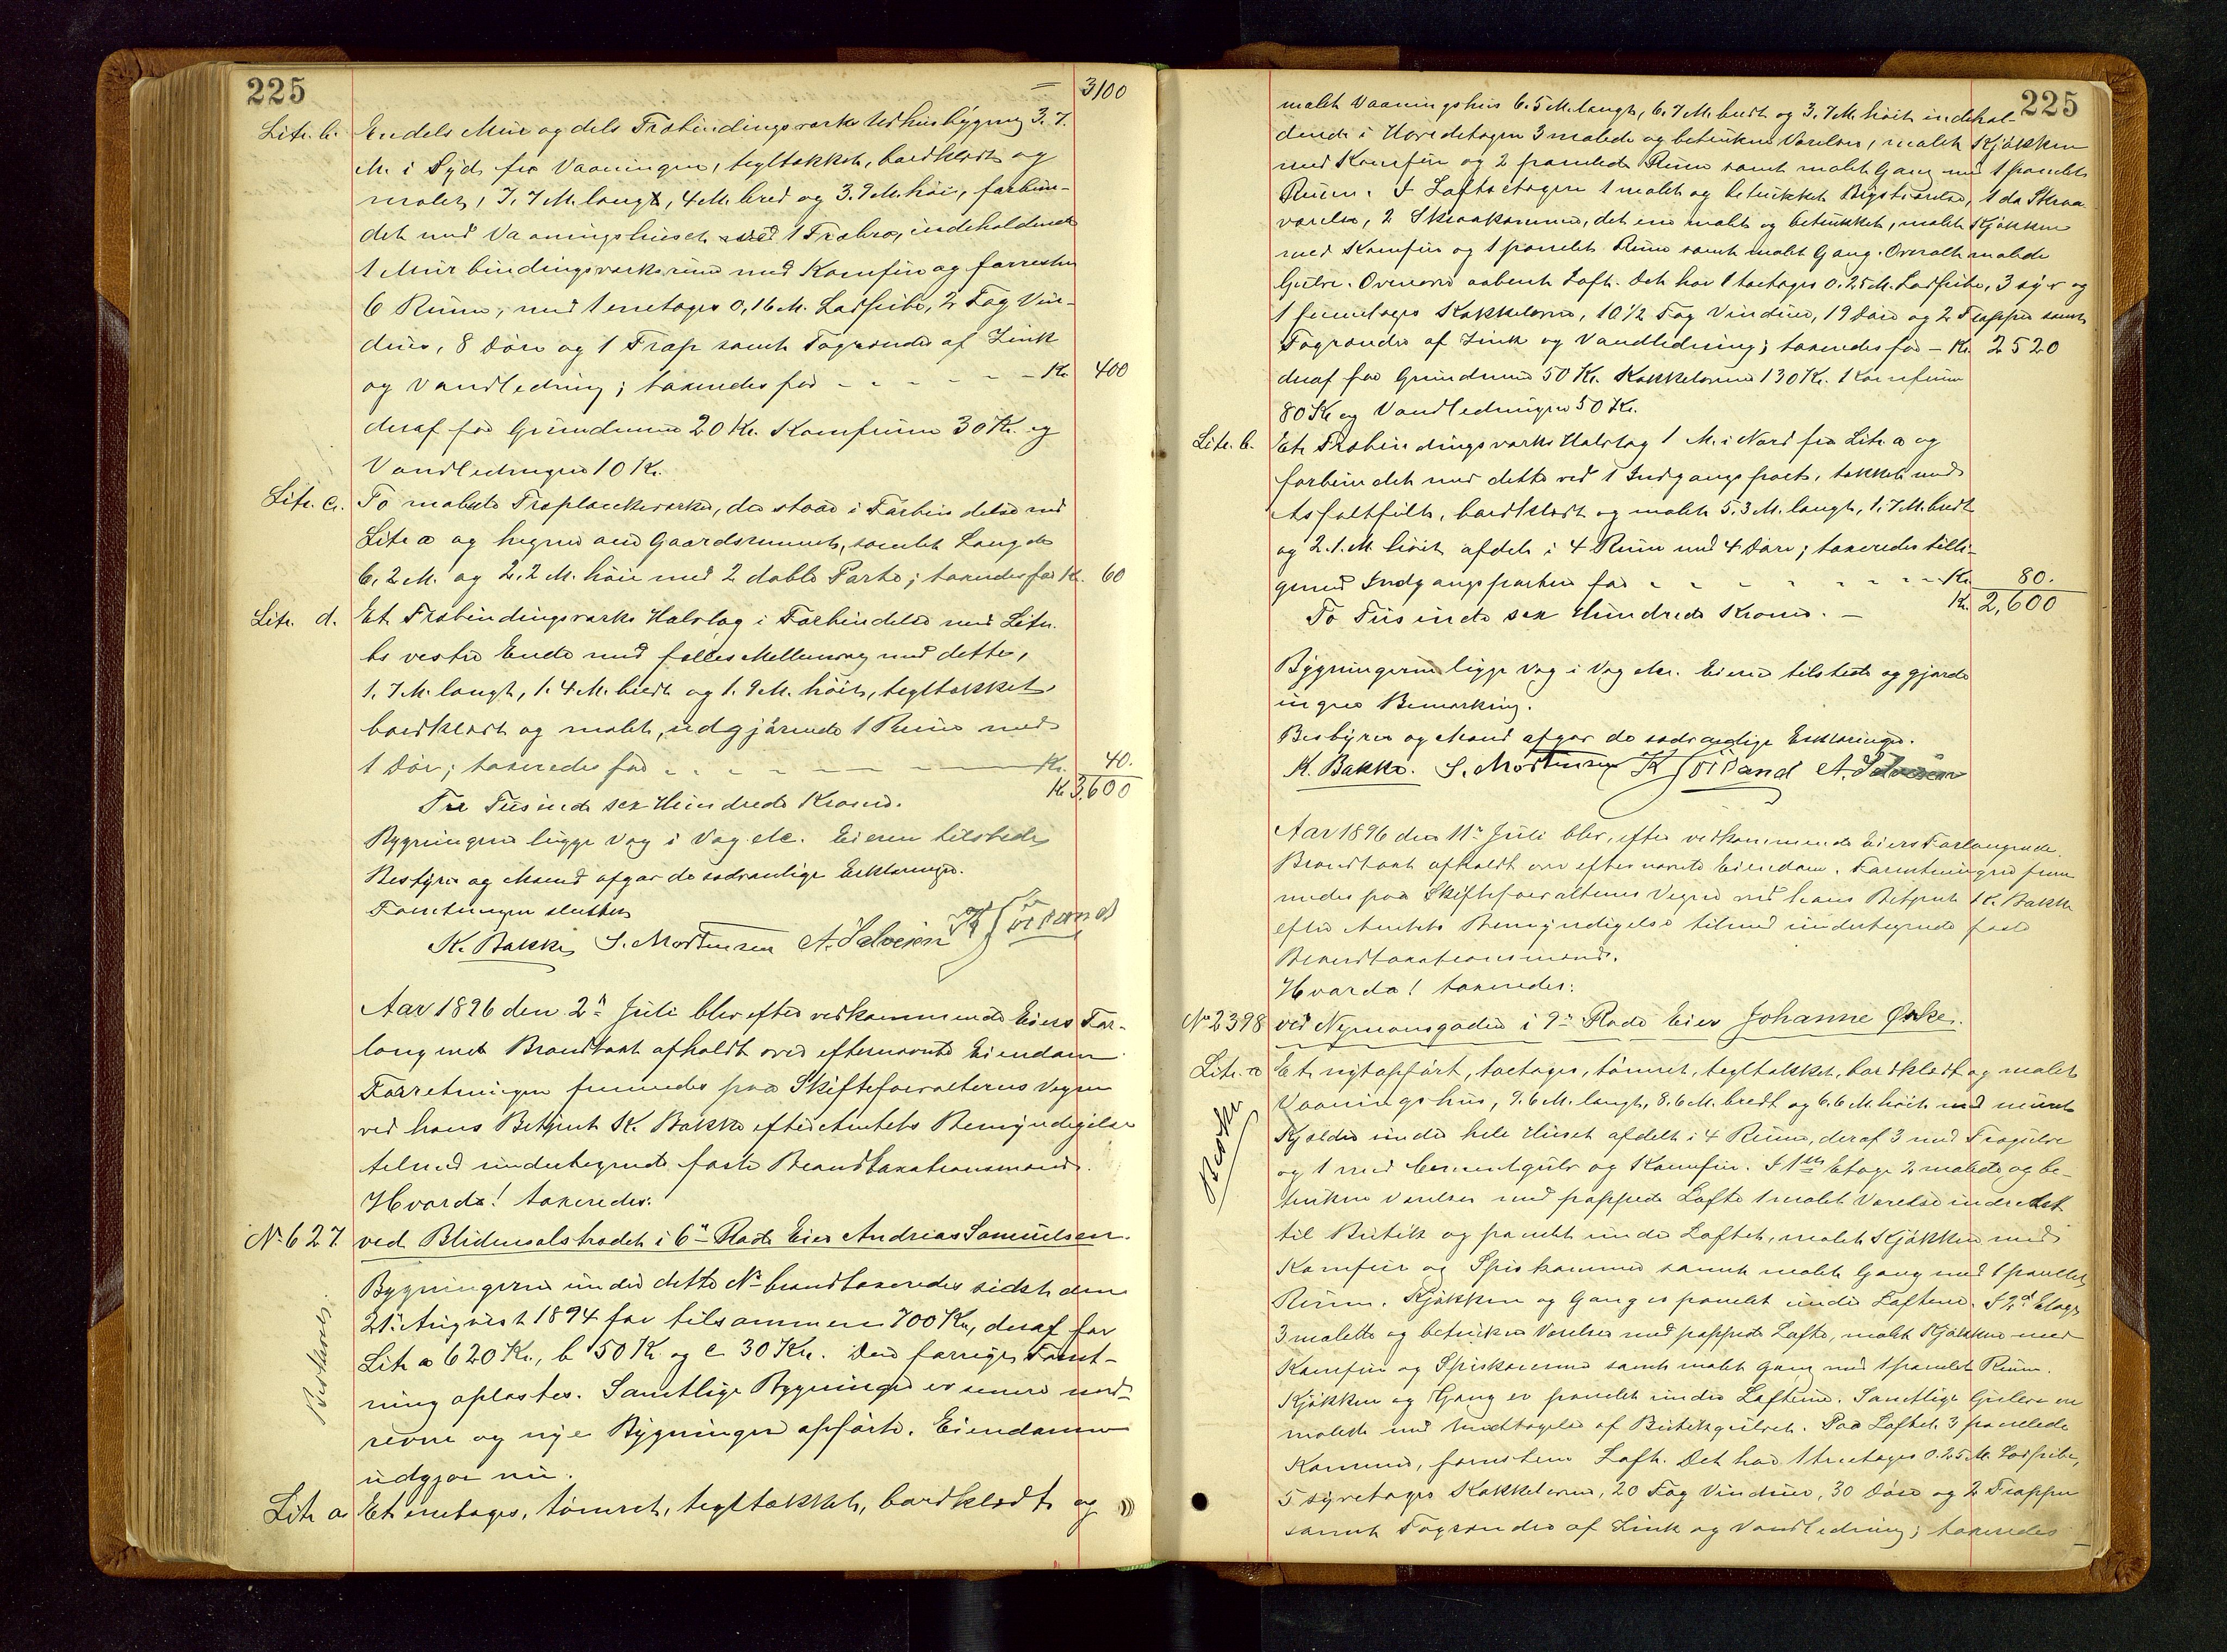 225
= 3100
Litr. b. En dels Mur og dels Træbindingsverks Udhusbygning 3.7.
M. i Syd fra Vaaningen, tegltækket, bordklædt og
malet, 7.7 M. langt, 4 M. bred og 3.9 M. høi, forbun-
det med Vaaningshuset ved 1 Træbro, indeholdende
1 Murbindingsverksrum med Komfur og forresten
6 Rum, med 1 enetages 0,16 M. Ladpibe, 2 Fag Vin-
duer, 8 Døre og 1 Trap samt Tagrender af Zink
og Vandledning; taxeredes for - - - - - - Kr. 400
deraf for Grundmur 20 Kr. Komfuren 30 Kr. og
Vandledningen 10 Kr.
Litr. c. To malede Træplankeværker, der staar i Forbindelse med
Litr a og hegner om Gaardsrummet, samlet Længde
6,2 M. og 2,2 M. høie med 2 doble Porte; taxeredes for Kr. 60
Litr. d. Et Træbindingsverks Halvtag i Forbindelse med Litr.
bs vestre Ende med fælles Mellemvæg med dette,
1.7 M. langt, 1.4 M. bredt og 1.9 M. høit, tegltækket
bordklædt og malet, udgjørende 1 Rum med
1 Dør; taxeredes for - - - - Kr. 40.
Tre Tusinde sex Hundrede Kroner. Kr. 3,600
Bygningerne ligge Væg i Væg etc. Eieren tilstede
Bestyrer og Mænd afgav de sædvanlige Erklæringer.
Forretningen sluttet
K. Bakke S. Mortensen A. Salvesen
Aar 1896 den 2n Juli blev efter vedkommende Eiers For-
langende Brandtaxt afholdt over efternævnte Eiendom.
Forretningen fremmedes paa Skifteforvalterens Vegne
ved hans Betjent K. Bakke efter Amtets Bemyndigelse
tilmed undertegnede faste Brandtaxationsmænd.
Hvorda! taxeredes:
No 627. ved Blidensolstrædet i 6n Rode Eier Andreas Samuelsen.
Bygningerne under dette No brandtaxeredes sidst den
21n August 1894 for tilsammen 700 Kr., deraf for
Litr a 620 Kr., b 50 Kr. og c 30 Kr. Den forrige Forret-
ning opløstes. Samtlige Bygninger er senere ned-
revne og nye Bygninger opførte. Eiendommen
udgjør nu:
Litr a Et enetages, tømret, tegltækket, bordklædt og
225
malet Vaaningshus 6.5 M. langt, 6.7 M. bredt og 3.7 M. høit indehol-
dende i Hovedetagen 3 malede og betrukne Værelser, malet Kjøkken
med Komfur og 2 panelede Rum samt malet Gang med 1 panelet
Rum. I Loftsetagen 1 malet og betrukket Kvistværelse, 1 do Skraa-
værelse, 2 Skraakammere, det ene malet og betrukket, malet Kjøkken
med Komfur og 1 panelet Rum samt malet Gang. Overalt malede
Gulve. Ovenover aabent Loft. Det har 1 toetages 0.25 M. Ladpibe, 3 syv og
1 femetages Kakkelovne, 10 1/2 Fag Vinduer, 19 Døre og 2 Trapper samt
Tagrender af Zink og Vandledning; taxeredes for - Kr. 2520
deraf for Grundmur 50 Kr. Kakkelovne 130 Kr. Komfurer
80 Kr og Vandledningen 50 Kr.
Litr. b. Et Træbindingsverks Halvtag 1 M. i Nord fra Litr. a og
forbundet med dette ved 1 Indgangsport, tækket med
Asfaltfilt, bordklædt og malet 5.3 M. langt, 1.7 M. bredt
og 2.1. M. høit afdelt i 4 Rum med 4 Døre; taxeredes tilli-
gemed Indgangsporten for - - - - - - - Kr. 80.
To Tusinde sex Hundrede Kroner. - Kr. 2,600
Bygningerne ligge Væg i Væg etc. Eieren tilstede og gjorde
ingen Bemærkning.
Bestyrer og Mænd afgav de sædvanlige Erklæringer.
K. Bakke. S. Mortensen A. Salvesen
Aar 1896 den 11n Juli blev, efter vedkommende Eiers Forlangende
Brandtaxt afholdt over efternævnte Eiendom. Forretningen frem
medes paa Skifteforvalterens Vegne ved hans Betjent K. Bakke
efter Amtets Bemyndigelse tilmed undertegnede faste
Brandtaxationsmænd.
Hvorda! taxeredes:
No 2398 ved Nymansgaden i 9n Rode Eier Johanne Ørke.
Litr. a Et nyt opført, toetages, tømret, tegltækket, bordklædt og malet
Vaaningshus, 9.6 M. langt, 8.6 M. bredt og 6.6 M. høit med muret
Kjælder under hele Huset afdelt i 4 Rum, deraf 3 med Trægulve
og 1 med Cementgulv og Komfur. I 1ste Etage 2 malede og be-
trukne Værelser med pappede Lofte 1 malet Værelse indredet
til Butik og panelet under Loftet, malet Kjøkken med
Komfur og Spiskammer samt malet Gang med 1 panelet
Rum. Kjøkken og Gang er panelet under Loftene. I 2d Etage
3 malede og betrukne Værelser med pappede Lofte, malet Kjøkken med
Komfur og Spiskammer samt malet Gang med 1 panelet Rum.
Kjøkken og Gang er panelet under Loftene. Samtlige Gulve er
malede med Undtagelse af Butiksgulvet. Paa Loftet 3 panelede
Kammer, forresten Loft. Det har 1 treetages 0.25 M. Ladpibe,
5 syvetages Kakkelovne, 20 Fag Vinduer, 30 Døre og 2 Trapper
samt Tagrender af Zink og Vandledning; taxeredes